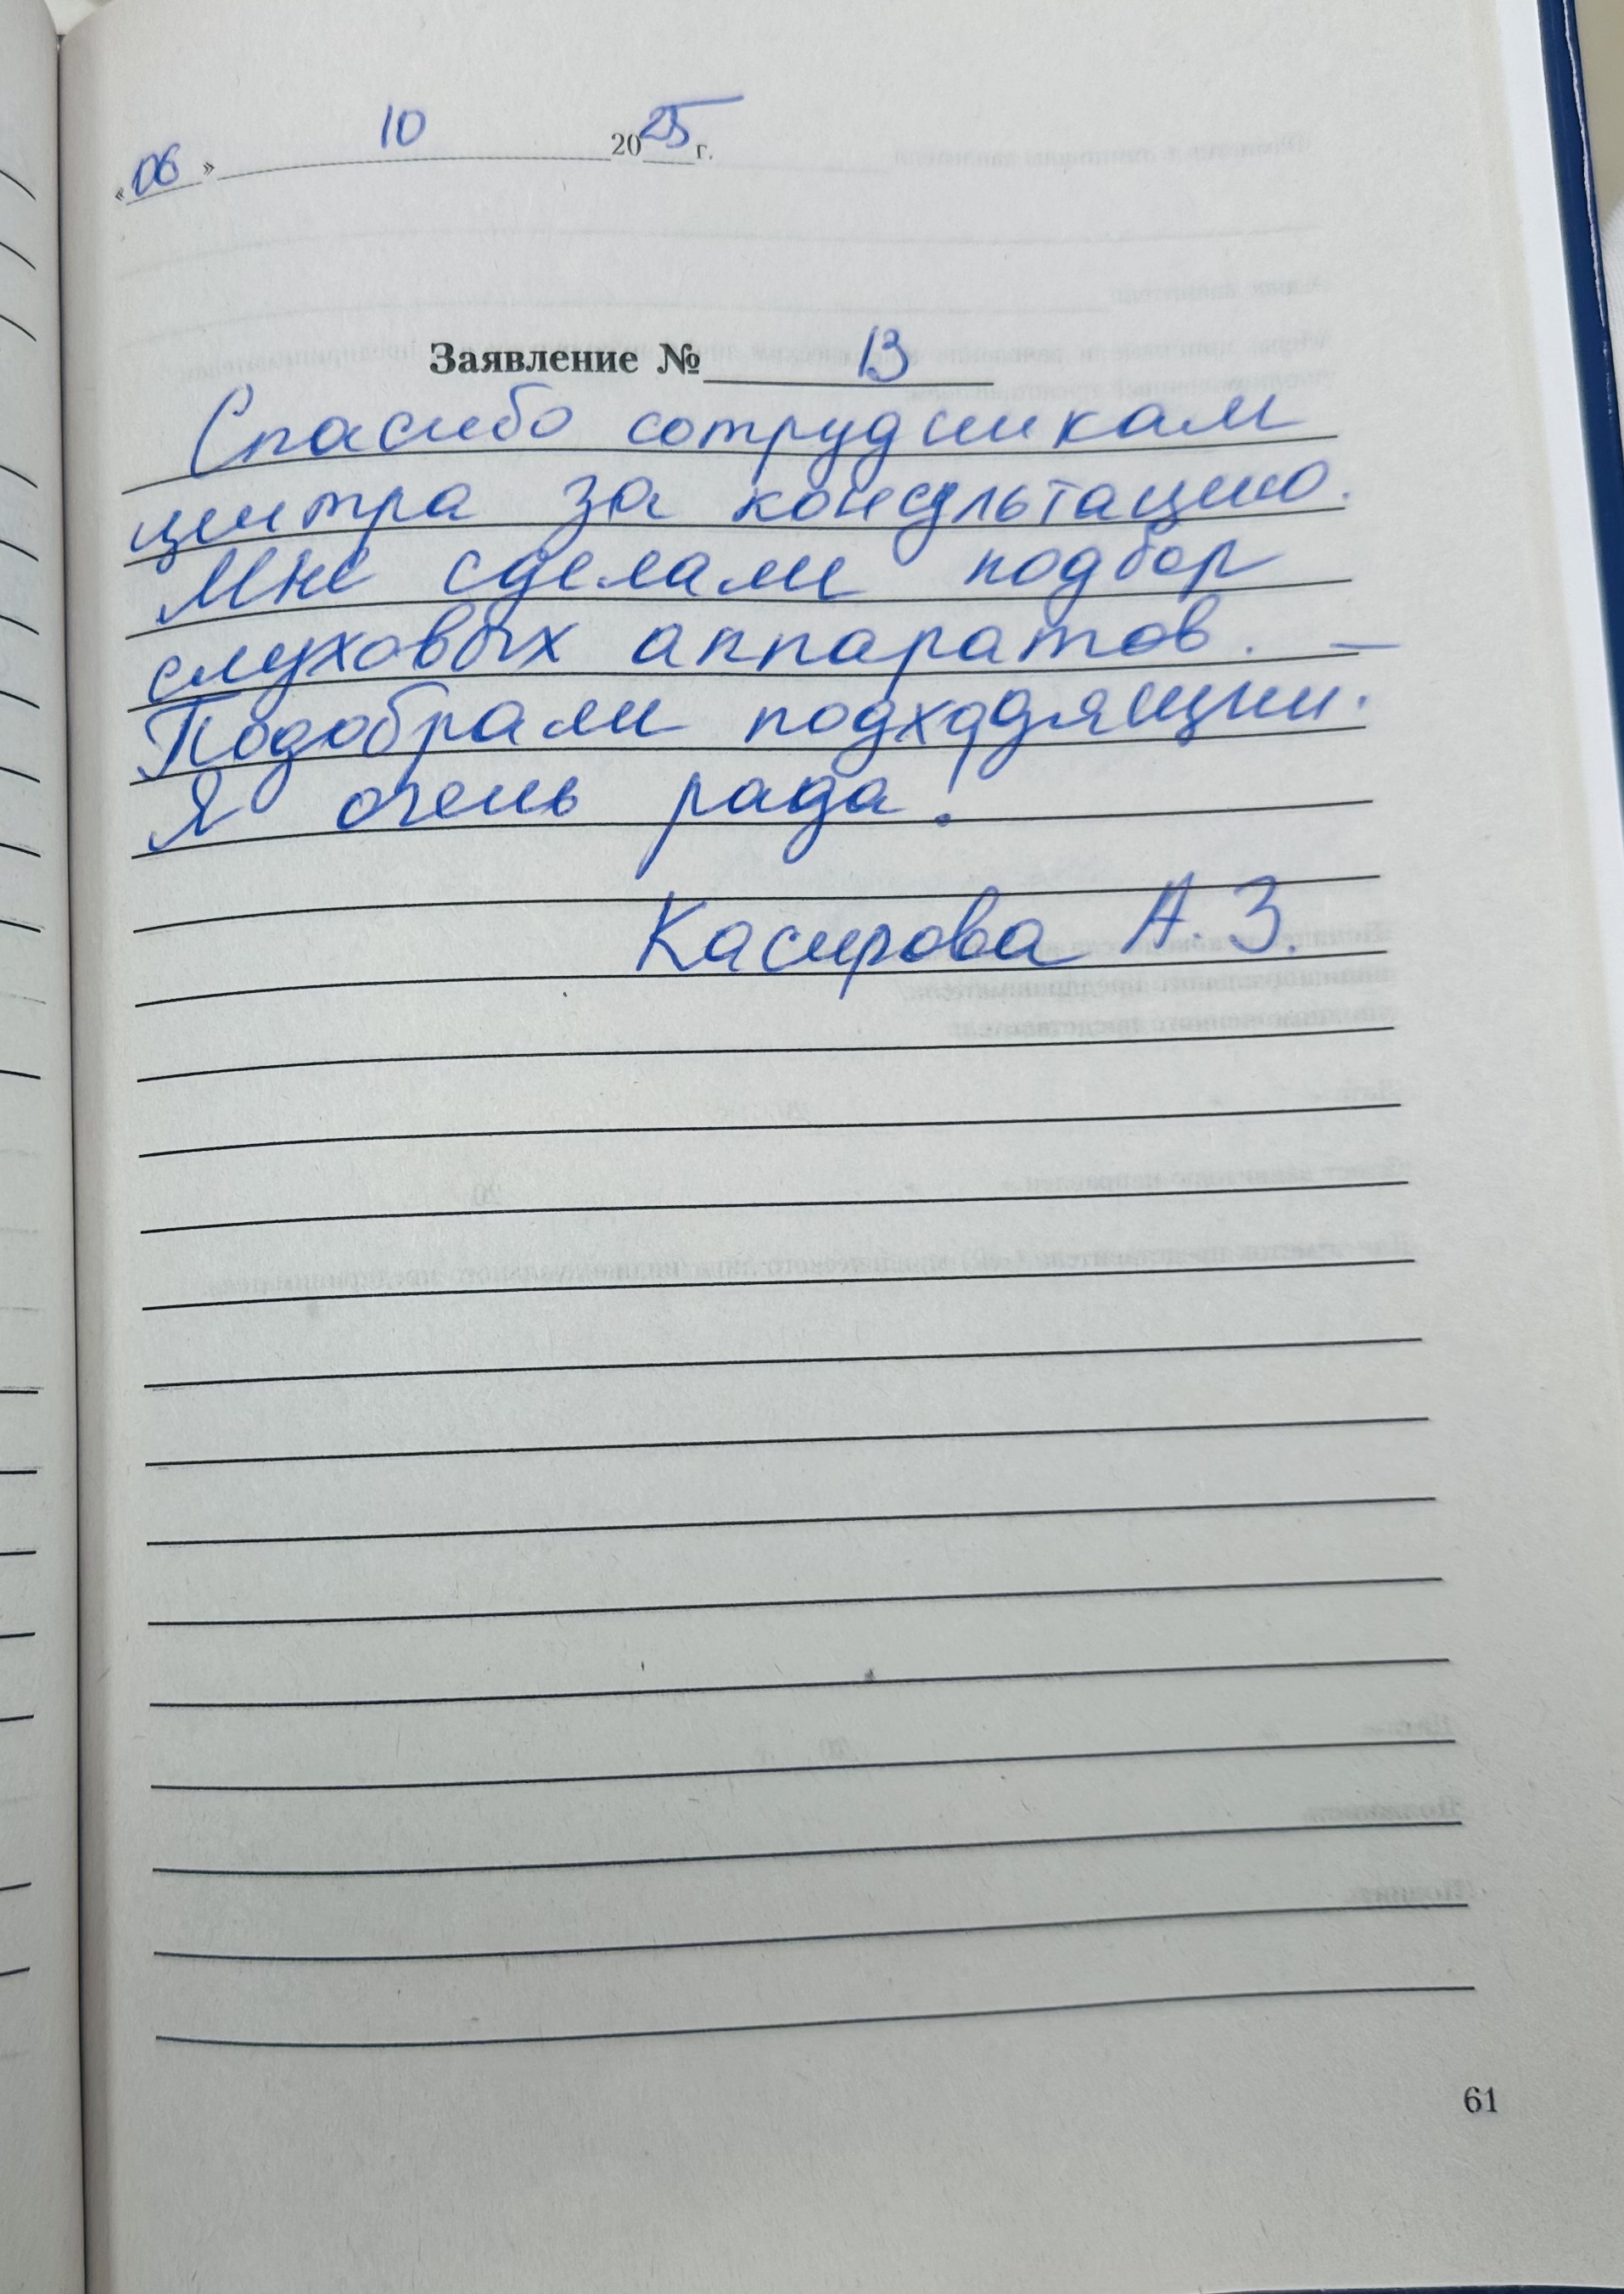 «06» 10 2025 г.
Заявление № 13
Спасибо сотрудникам
центра за консультацию.
Мне сделали подбор
слуховых аппаратов. –
Подобрали подходящии.
Я очень рада!
Касирова А. З.
61